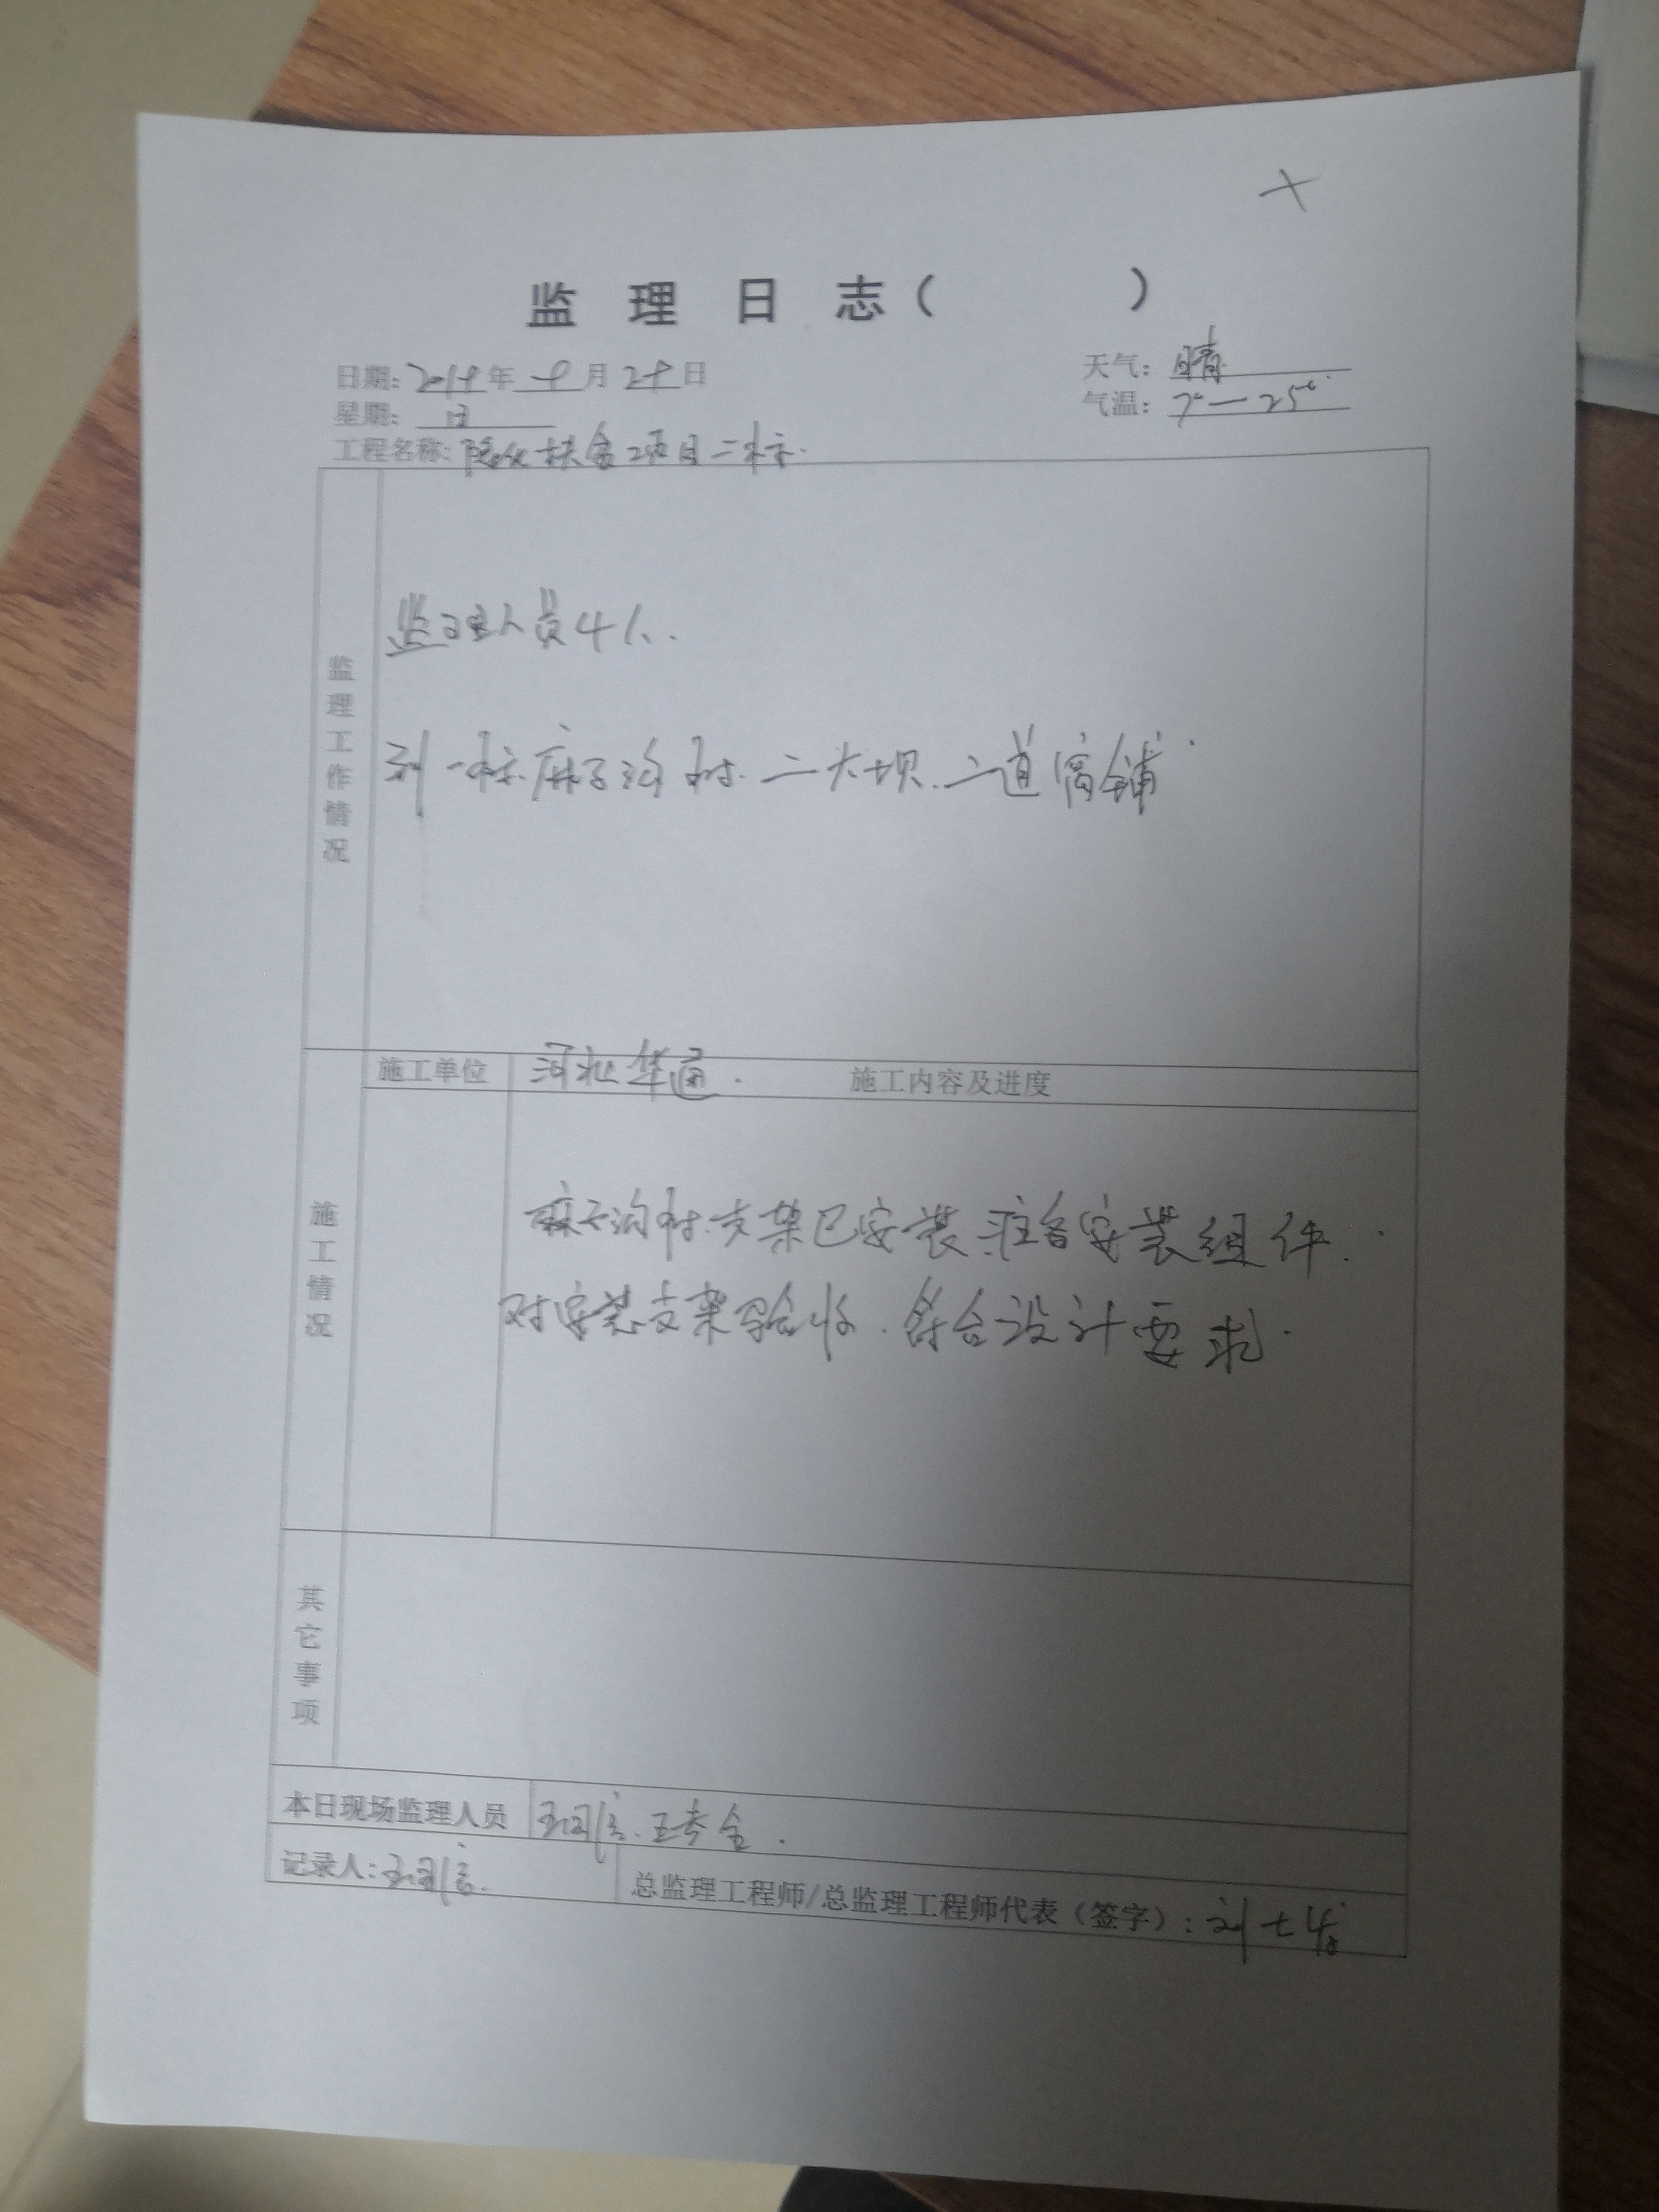 监 理 日 志（ ）
日期： 年 月 日
天气：晴
星期：日
气温：7°—25°
工程名称：隆化扶贫项目二标.
监理工作情况
监理人员4人.
到一标.麻子沟村.二大坝.二道窝铺
施工单位 河北华通. 施工内容及进度
施工情况
麻子沟村.支架已安装.准备安装组件.
对安装支架验收.符合设计要求.
其它事项
本日现场监理人员
记录人：
总监理工程师/总监理工程师代表（签字）：